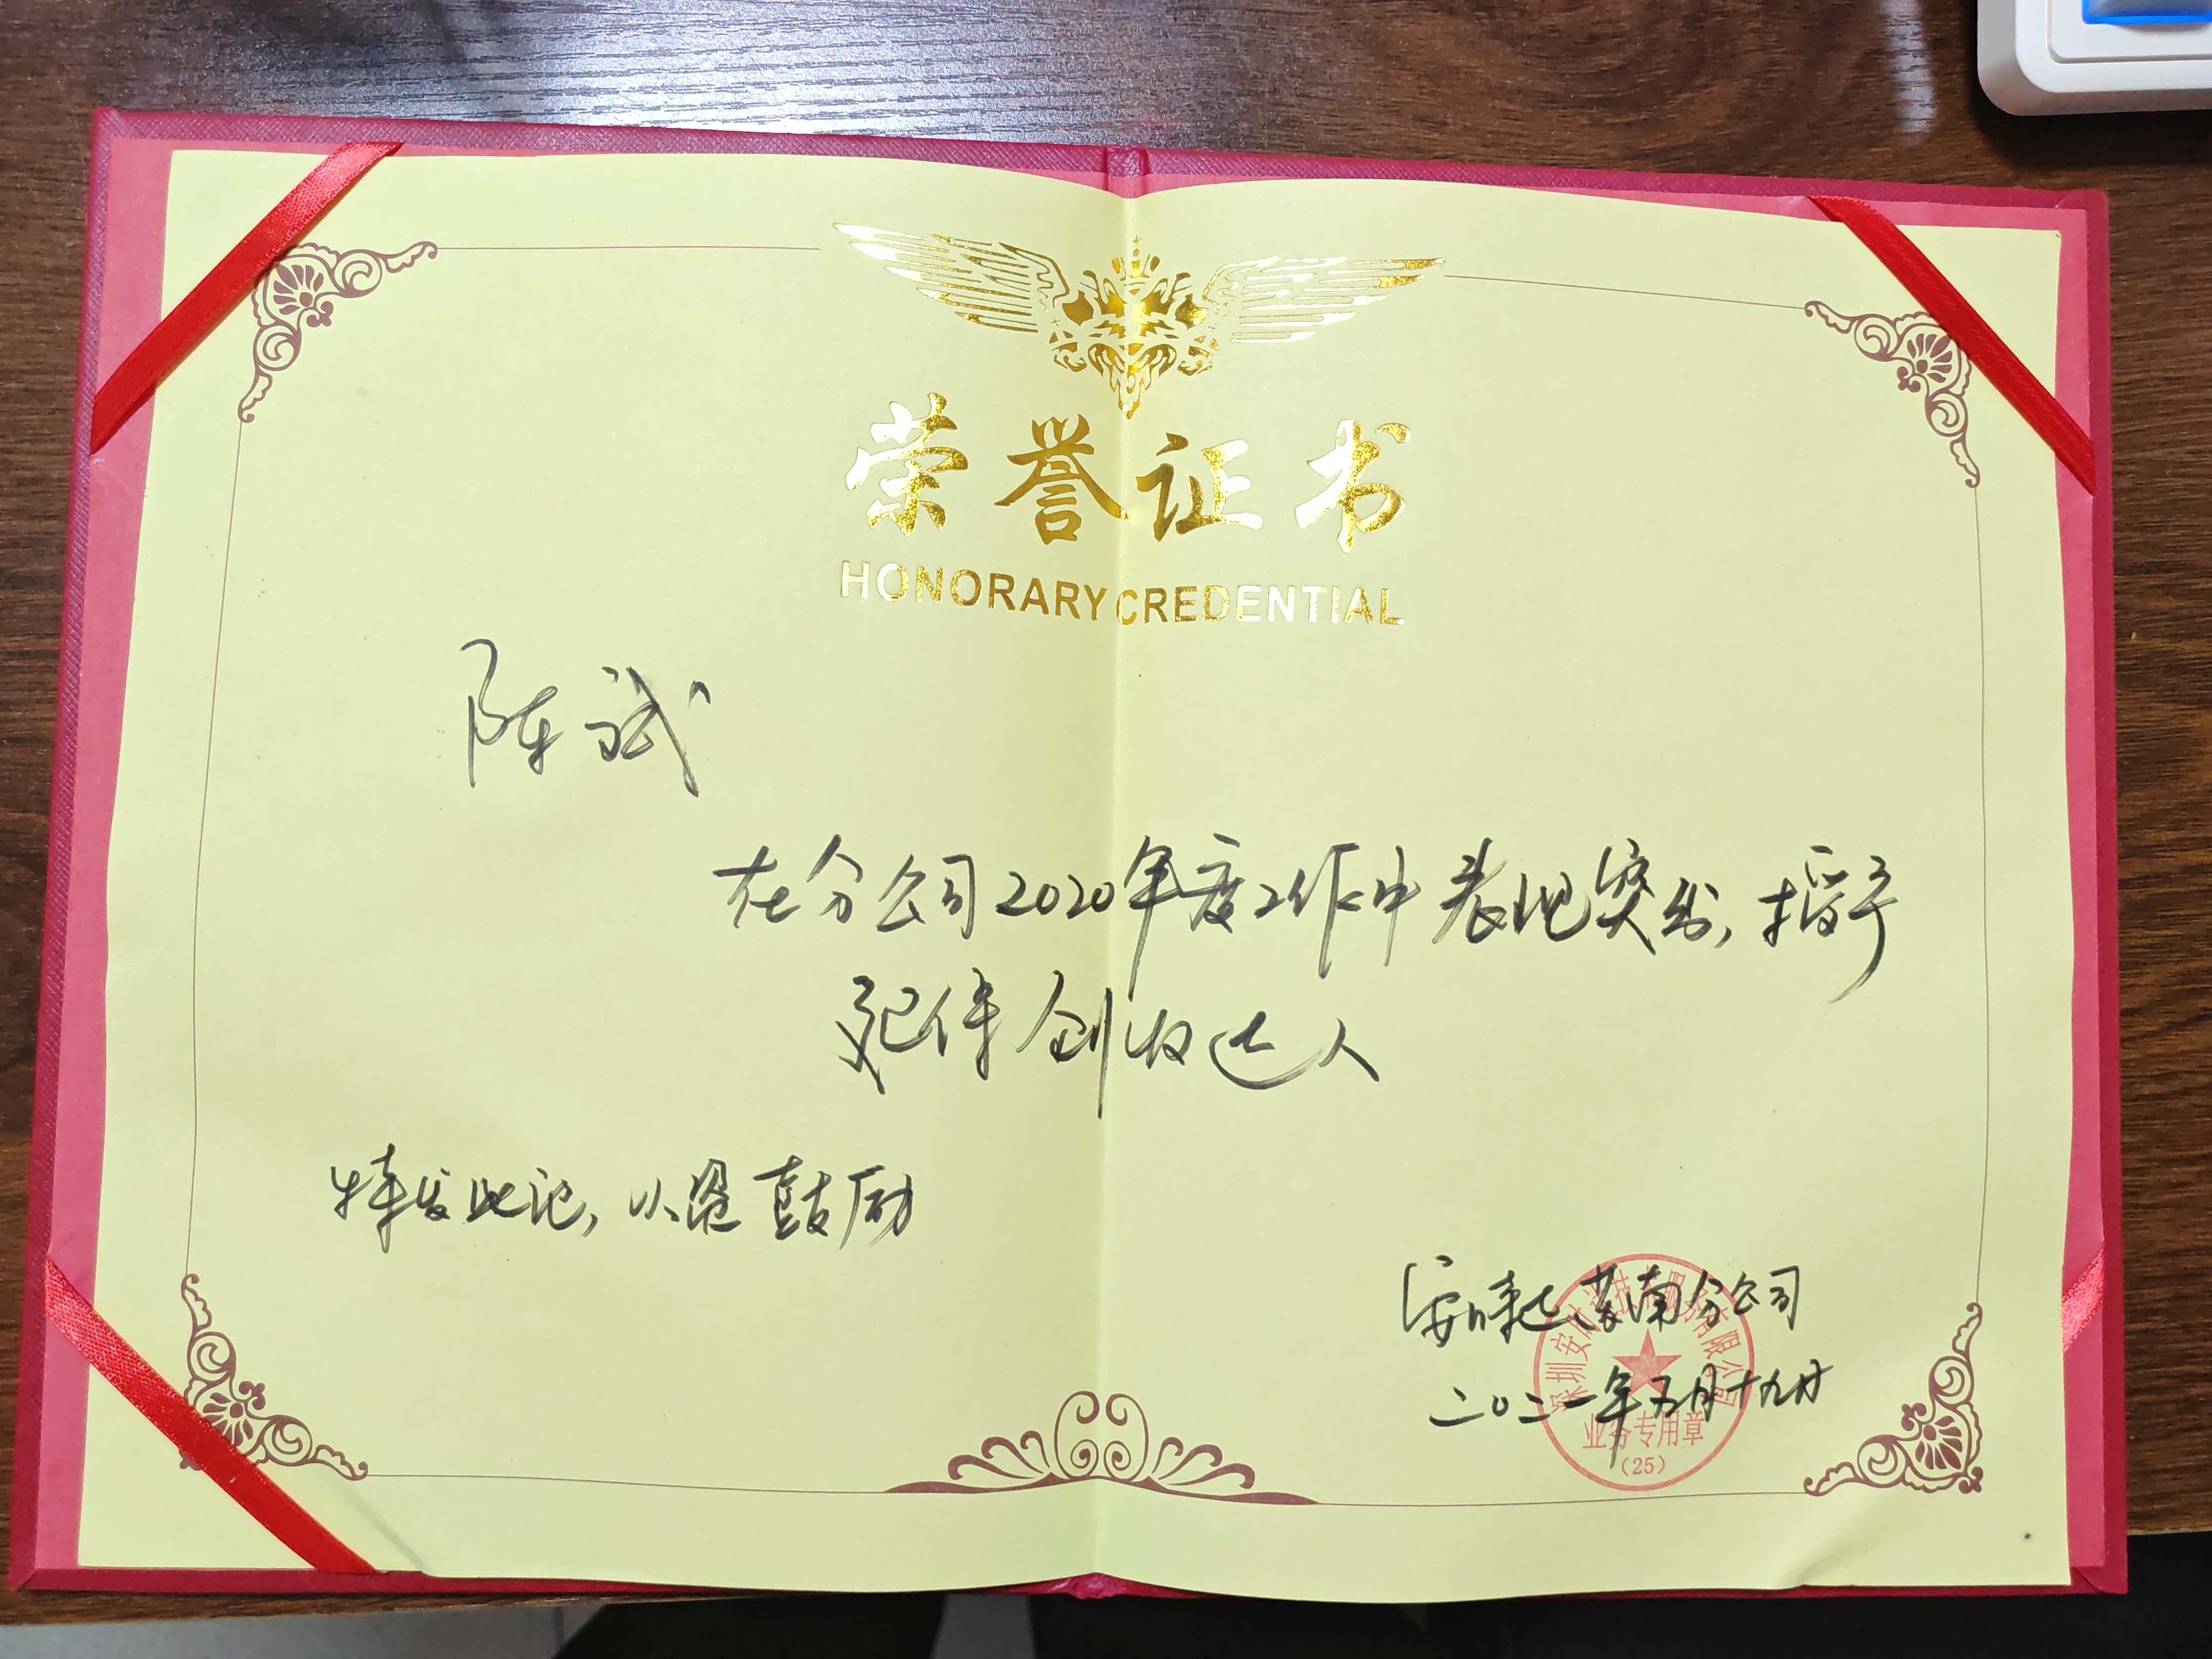 荣誉证书
HONORARY CREDENTIAL
陈斌
在分公司2020年度工作中表现突出,授予
配件创收达人
特发此记,以资鼓励
安时达滇南分公司
二〇二一年五月十九日
深圳安时达技术服务有限公司
业务专用章
(25)